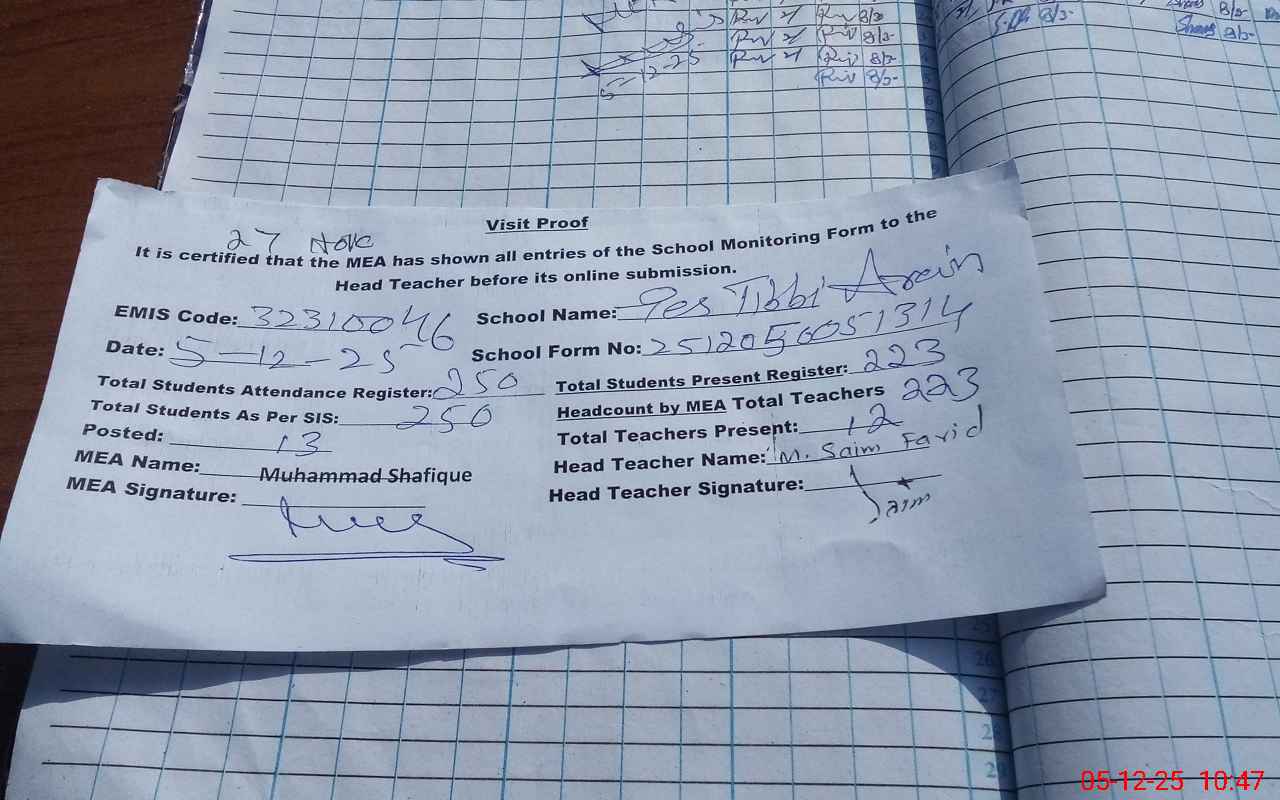 Riv 8/3-
Riv 8/3-
Riv 8/3-
5-12-25
Riv 8/3-
Visit Proof
27 Nove
It is certified that the MEA has shown all entries of the School Monitoring Form to the
Head Teacher before its online submission.
EMIS Code: 32310046 School Name: Ges Tibbi Arain
Date: 5-12-25 School Form No: 25120500051314
Total Students Attendance Register: 250 Total Students Present Register: 223
Total Students As Per SIS: 250 Headcount by MEA Total Teachers 223
Posted: 13 Total Teachers Present: 12
MEA Name: Muhammad Shafique Head Teacher Name: M. Saim Farid
MEA Signature: Head Teacher Signature: Saim
25
26
27
05-12-25 10:47